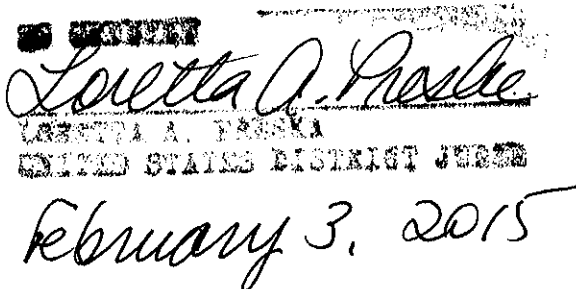 Loretta A. Preska
LORETTA A. PRESKA
UNITED STATES DISTRICT JUDGE
February 3, 2015